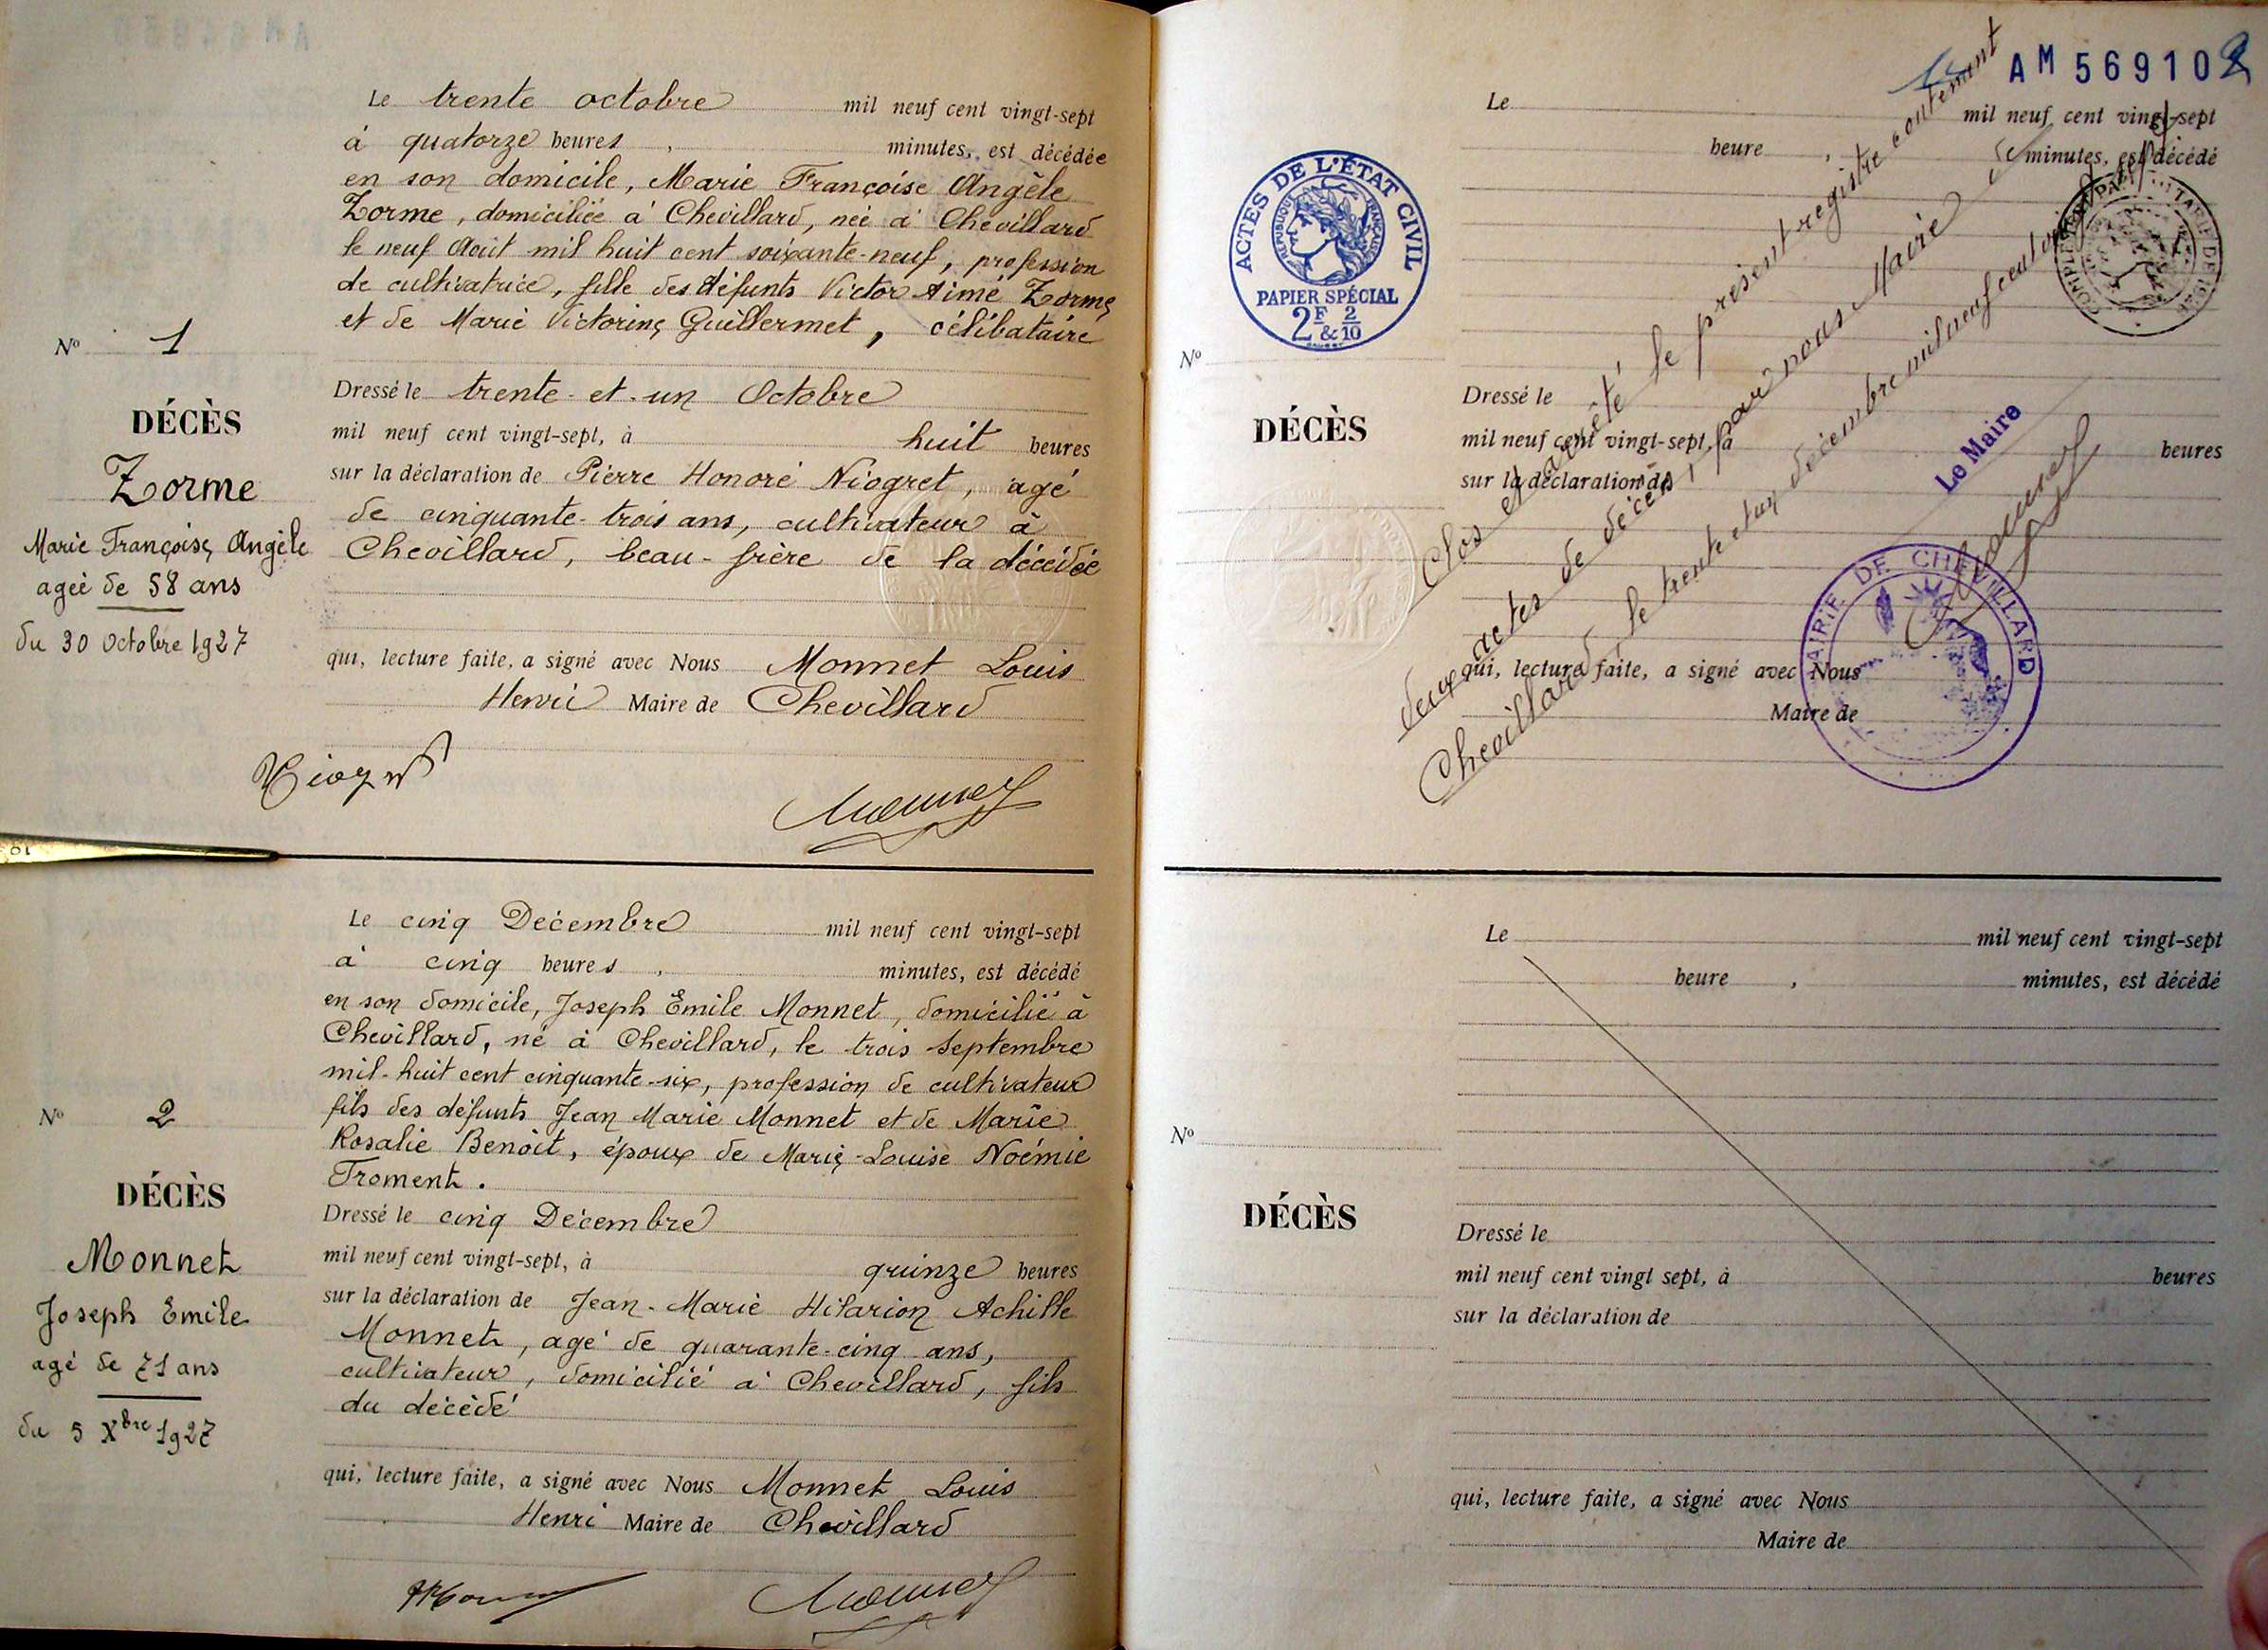 Le trente octobre mil neuf cent vingt-sept
à quatorze heures , minutes, est décédée
en son domicile, Marie Françoise Angèle
Zorme, domiciliée à Chevillard, née à Chevillard
le neuf Août mil huit cent soixante-neuf, profession
de cultivatrice, fille des défunts Victor Aimé Zorme
et de Marie Victorine Guillermet, célibataire
Nº 1
DÉCÈS
Zorme
Marie Françoise Angèle
agée de 58 ans
du 30 Octobre 1927
Dressé le trente-et-un Octobre
mil neuf cent vingt-sept, à huit heures
sur la déclaration de Pierre Honoré Niogret, agé
de cinquante-trois ans, cultivateur à
Chevillard, beau-frère de la décédée
qui, lecture faite, a signé avec Nous Monnet Louis
Henri Maire de Chevillard
Niogret
Monnet
10
Le cinq Décembre mil neuf cent vingt-sept
à cinq heures , minutes, est décédé
en son domicile, Joseph Emile Monnet, domicilié à
Chevillard, né à Chevillard, le trois Septembre
mil-huit cent cinquante-six, profession de cultivateur
fils des défunts Jean Marie Monnet et de Marie
Rosalie Benoit, époux de Marie-Louise Noémie
Froment.
Nº 2
DÉCÈS
Monnet
Joseph Emile
agé de 71 ans
du 5 Xbre 1927
Dressé le cinq Décembre
mil neuf cent vingt-sept, à quinze heures
sur la déclaration de Jean-Marie Hilarion Achille
Monnet, agé de quarante-cinq ans,
cultivateur, domicilié à Chevillard, fils
du décédé
qui, lecture faite, a signé avec Nous Monnet Louis
Henri Maire de Chevillard
Monnet
AM 569102
Le mil neuf cent vingt-sept
heure , minutes, est décédé
ACTES DE L'ÉTAT CIVIL
RÉPUBLIQUE FRANÇAISE
PAPIER SPÉCIAL
2F & 2/10
Nº
DÉCÈS
Dressé le
mil neuf cent vingt-sept, à heures
sur la déclaration de
qui, lecture faite, a signé avec Nous
Maire de
Clos et arrêté le présent registre contenant
deux actes de décès, par nous Maire de
Chevillard, le trente et un décembre mil neuf cent vingt sept
Le Maire
Monnet
MAIRIE DE CHEVILLARD
Le mil neuf cent vingt-sept
heure , minutes, est décédé
Nº
DÉCÈS
Dressé le
mil neuf cent vingt sept, à heures
sur la déclaration de
qui, lecture faite, a signé avec Nous
Maire de